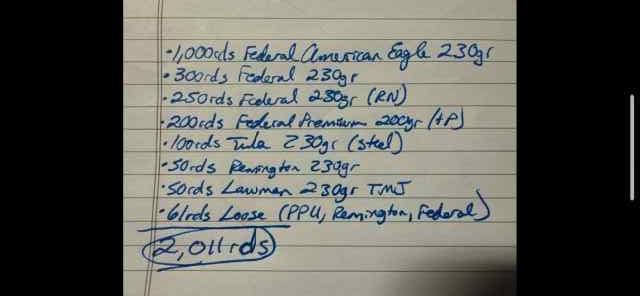 • 1,000rds Federal American Eagle 230gr
• 300rds Federal 230gr
• 250rds Federal 230gr (RN)
• 200rds Federal Premium 200gr (+P)
• 100rds Tula 230gr (steel)
• 50rds Remington 230gr
• 50rds Lawman 230gr TMJ
• 61rds Loose (PPU, Remington, Federal)
2,011rds